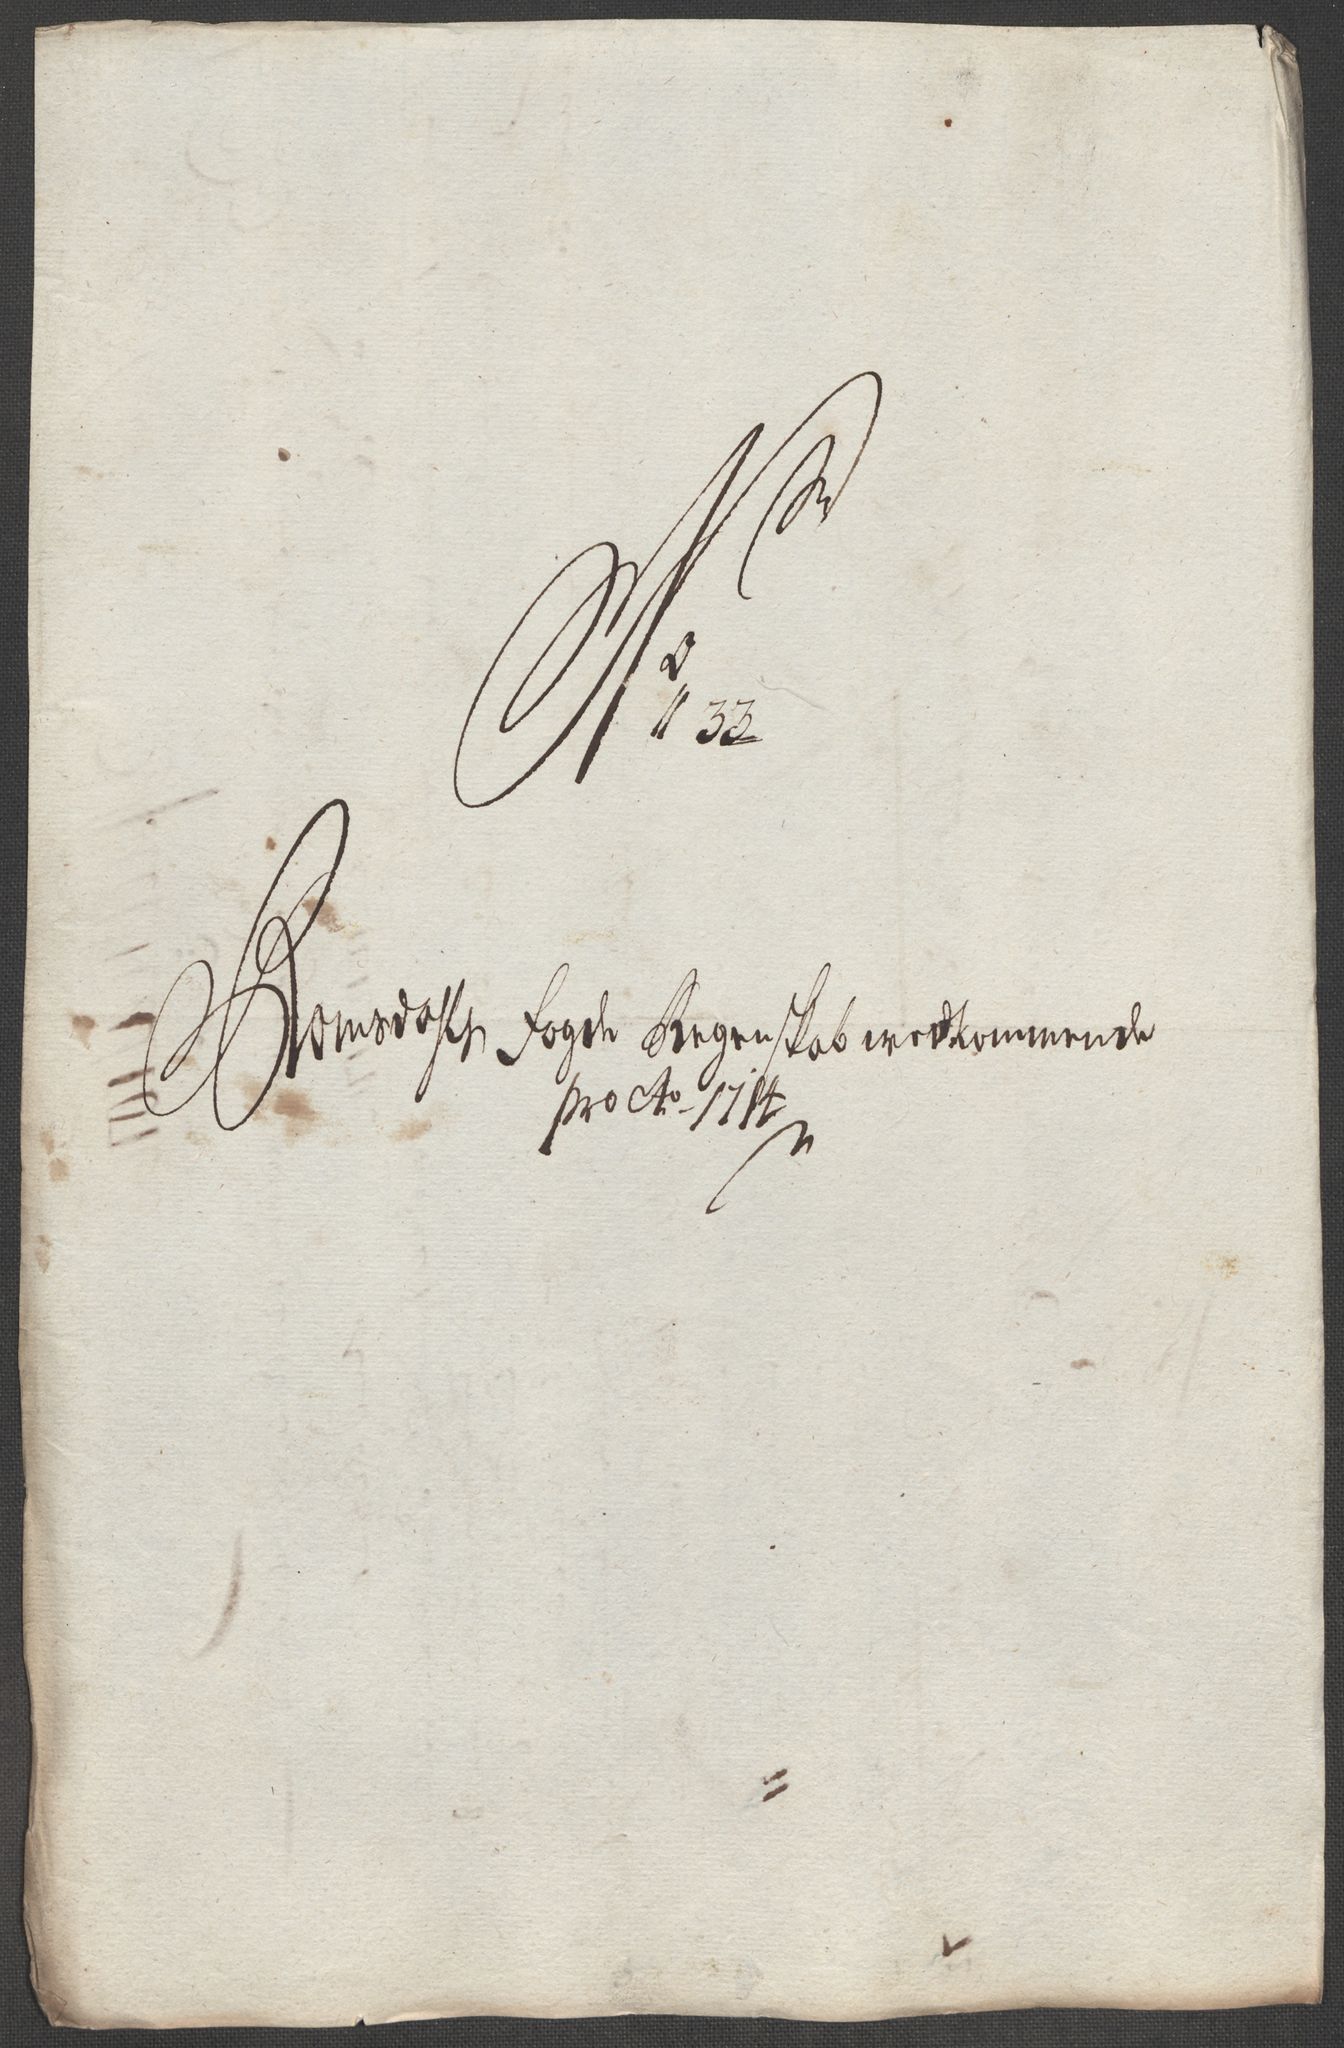 No 33
Romsdahls Fogde Regenskab wedkommende
pro Ao 1714